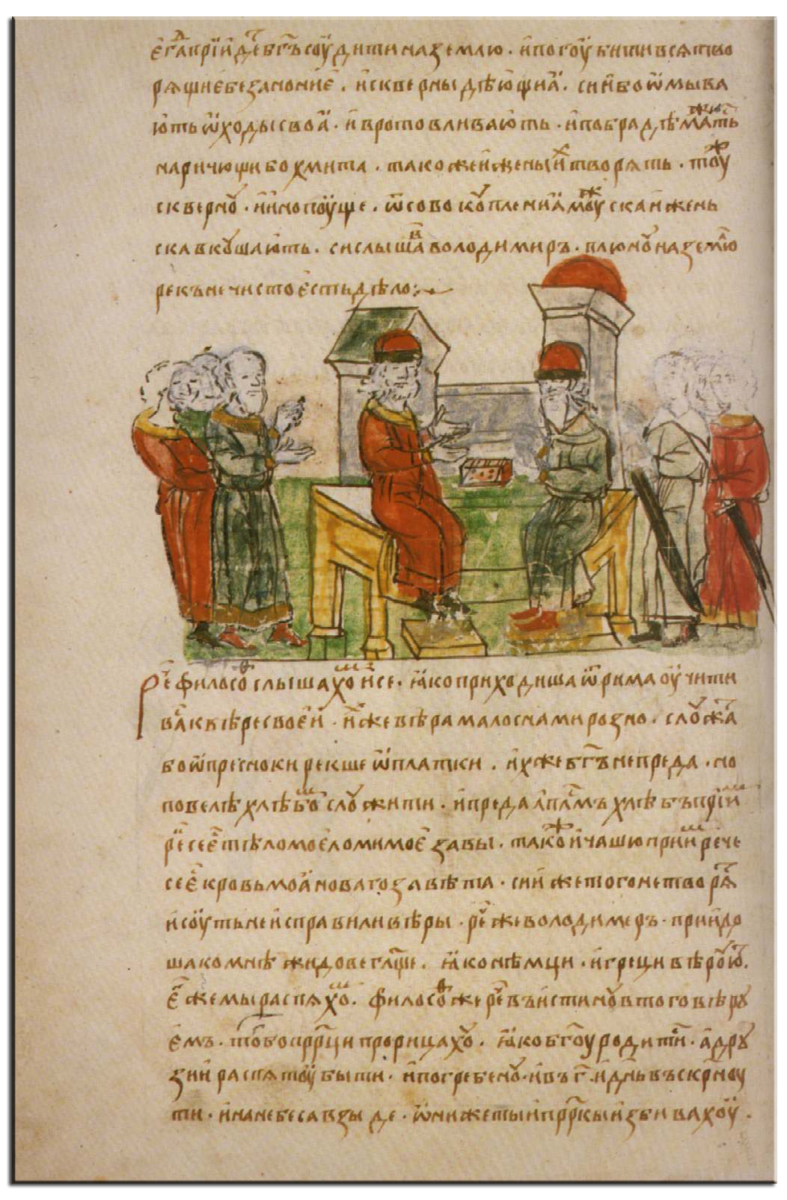 егда прїидет бг҃ъ соудити на землю · и погоубити вся тво
рящиѣ безаконїе · и скверны дѣющиа · сии бо ѿмыва
ють ѿходы своа · и в рот вливають · и по браде мажють
наричющи бохмита · тако же и жены их творять · тоу ж
скверноу · и ино поуще · ѿ совокоуплениа моужска и жень
ска вкоушають · си слышав володимиръ · плюноу на землю
рекъ нечисто есть дѣло :~
Рече филосов слышахом и се · яко приходиша ѿ рима оучити
вас к вѣре своеи · их же вѣра мало с нами розно · слоужат
бо ѿпреснокы рекше ѿплатки · их же бг҃ъ не преда · но
повелѣ хлѣбом слоужити · и преда ап҃лмъ хлѣбъ прїим
рече се ест тѣло мое ломимое за вы · тако ж и чашю приим рече
се е кровь моа новаго завѣта · сии же того не творят
и соуть не исправили вѣры · рече же володимеръ · приидо
ша ко мнѣ жидове гл҃ще · яко нѣмци · и греци вѣроують
егоже мы распяхом · филосов же рече въистиноу в того вѣру
емъ · тѣх бо прр҃ци прорицахоу · яко бг҃оу родитис · а дру
зии распятоу быти · и погребеноу · и въ г҃ · и дн҃ь въскр҃сноу
ти · и на небеса взыде · ѿни же тыи прр҃кы избивахоу ·